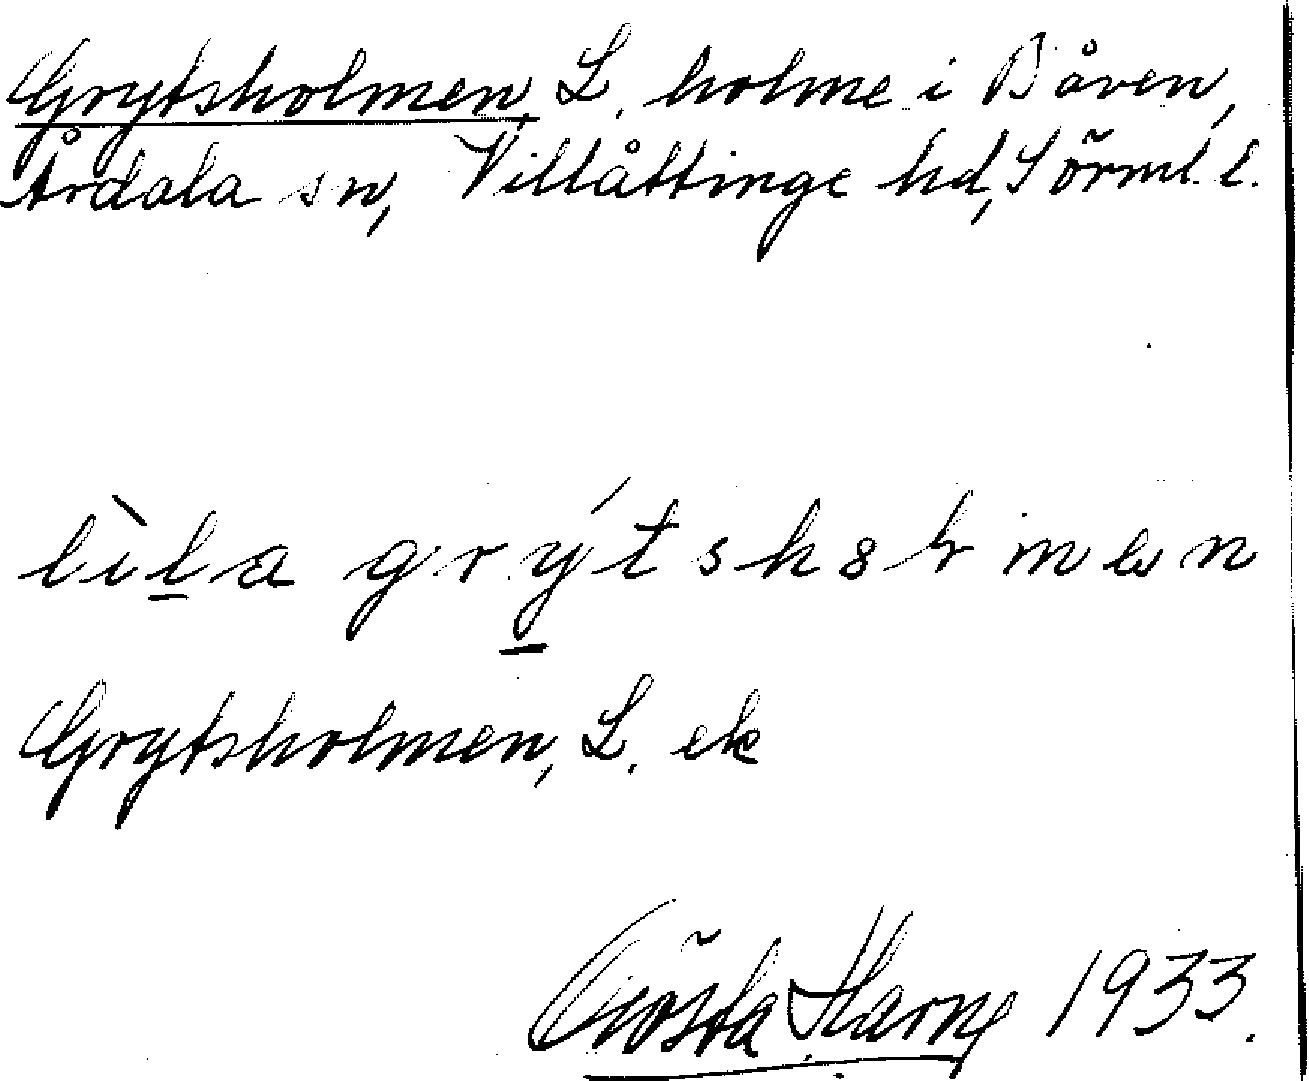 Grytsholmen, L. holme i Båven,
Årdala sn, Villåttinge hd, Sörml. l.
lìla grýtshɷlmen
Grytsholmen, L. ek
Gösta 1933.